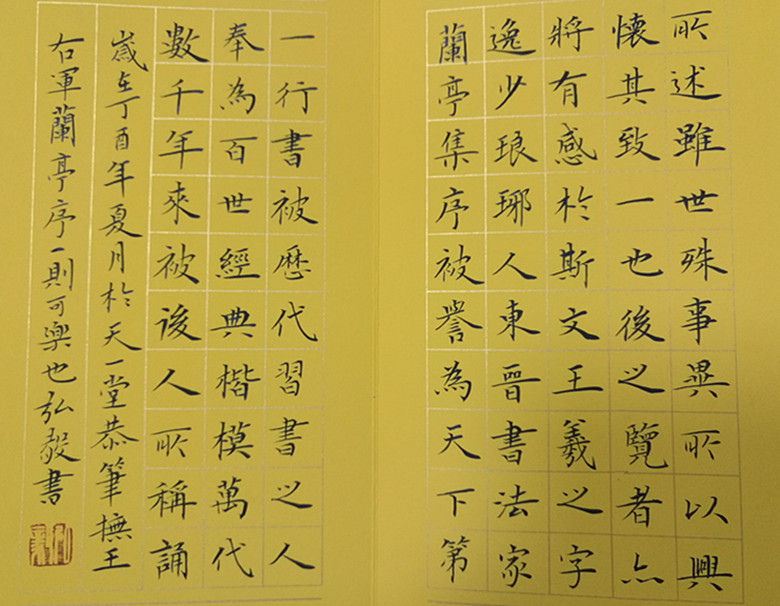 所述雖世殊事異所以興
懷其致一也後之覽者亦
將有感於斯文王羲之字
逸少琅琊人東晉書法家
蘭亭集序被譽為天下第
一行書被歷代習書之人
奉為百世經典楷模萬代
數千年來被後人所稱誦
歲在丁酉年夏月於天一堂恭筆撫王
右軍蘭亭序一則可樂也弘毅書